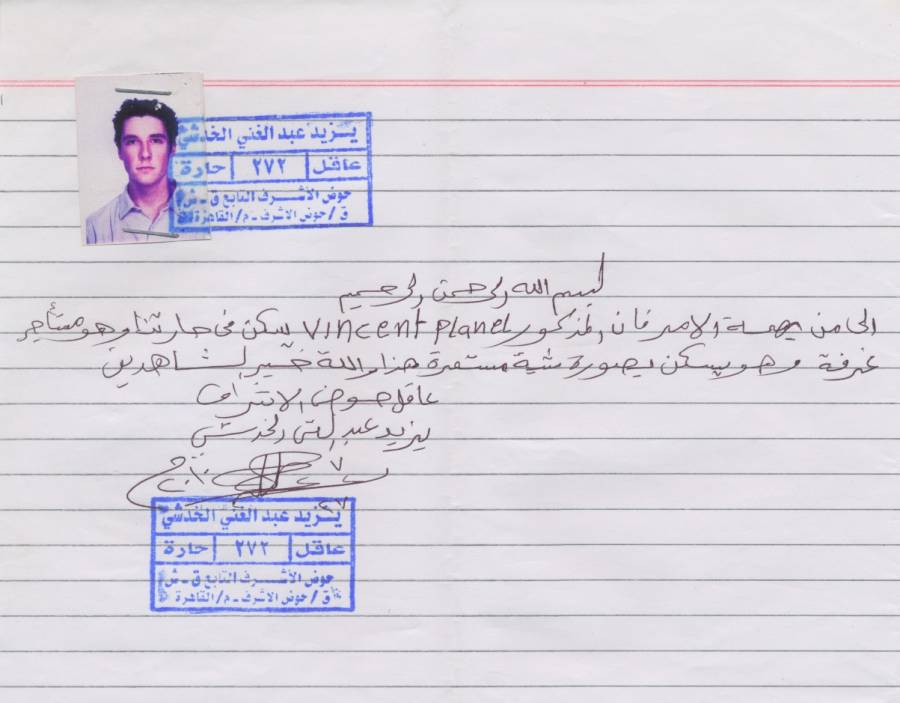 يزيد عبد الغني الخدشي
عاقل ٢٧٢ حارة
حوض الأشرف التابع ق - ش
ق / حوض الاشرف - م / القاهرة
بسم الله الرحمن الرحيم
الى من يهمه الامر فان المذكور Vincent Planel يسكن في حارتنا وهو مستأجر
غرفة وهو يسكن بصورة شبة مستمرة هذا والله خير الشاهدين
عاقل حوض الاشراف
يزيد عبد الغني الخدشي
يزيد عبد الغني الخدشي
عاقل ٢٧٢ حارة
حوض الأشرف التابع ق - ش
ق / حوض الاشرف - م / القاهرة